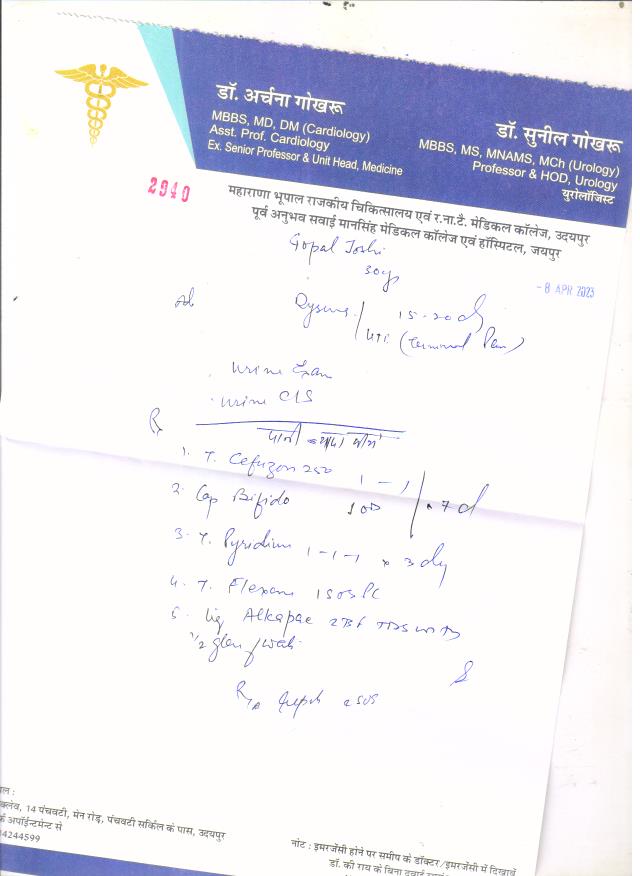 डॉ. अर्चना गोखरू
MBBS, MD, DM (Cardiology)
Asst. Prof. Cardiology
Ex. Senior Professor & Unit Head, Medicine
डॉ. सुनील गोखरू
MBBS, MS, MNAMS, MCh (Urology)
Professor & HOD, Urology
युरोलॉजिस्ट
2940
महाराणा भूपाल राजकीय चिकित्सालय एवं र.ना.टै. मेडिकल कॉलेज, उदयपुर
पूर्व अनुभव सवाई मानसिंह मेडिकल कॉलेज एवं हॉस्पिटल, जयपुर
Gopal Joshi
30yr
- 8 APR 2023
15-20d
UTI (Terminal Pain)
Urine Exam
Urine C/S
Rx
पानी ज्यादा पीयें
1. T. Cefuzon 250 1 - 1
2. Cap Bifido 1 OD x 7d
3. T. Pyridium 1-1-1 x 3 day
4. T. Flexan 1 SOS PC
5. Liq Alkapac 2 TSF TDS with
1/2 glass of water
SOS
ल :
क्लेव, 14 पंचवटी, मेन रोड़, पंचवटी सर्किल के पास, उदयपुर
अपॉईन्टमेन्ट से
4244599
नोट : इमरजेंसी होने पर समीप के डॉक्टर/इमरजेंसी में दिखावें
डॉ. की राय के बिना दवाई